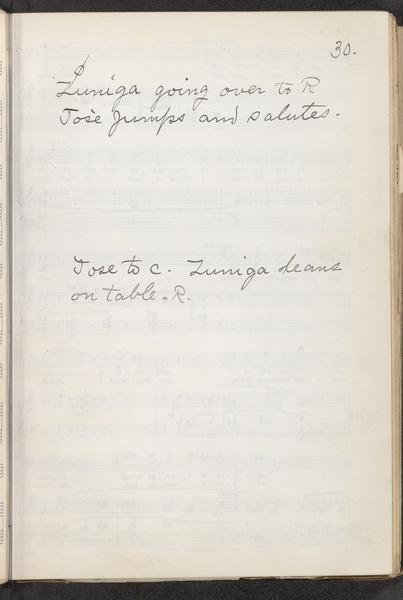 30.
Zuniga going over to R
José jumps and salutes.
Jose to C. Zuniga leans
on table. R.